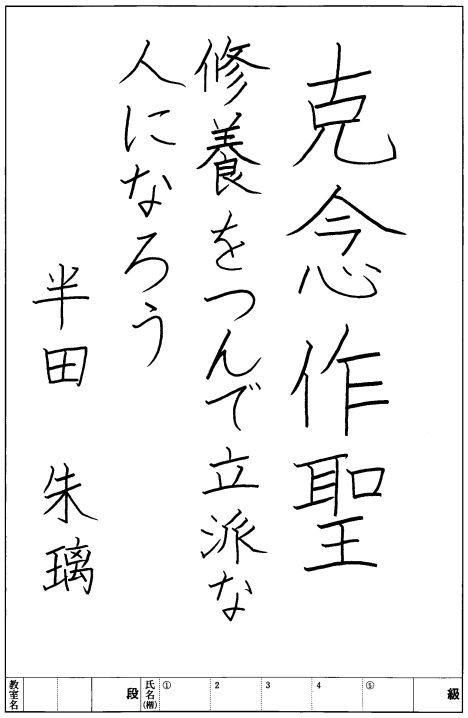 克念作聖
修養をつんで立派な
人になろう
半田 朱璃
教室名 段 氏名(楷) ① 2 3 4 ⑤ 級